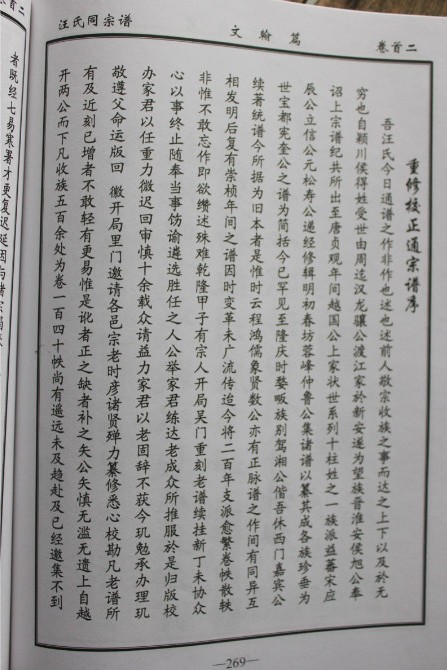 汪氏同宗谱
文翰篇
卷首二
重修校正通宗谱序
吾汪氏今日通谱之作非作也述也述前人敬宗收族之事而达之上下以及於无
穷也自颍川侯得姓受世由周迄汉龙骧公渡江家於新安遂为望族晋淮安侯旭公奉
诏上宗谱纪共所出至唐贞观年间越国公上家状世系列十柱姓之一族派益蕃宋应
辰公立信公元松寿公递经修辑明初春坊蓉峰仲鲁公集诸谱以纂其成各族珍垂为
世宝都宪奎公之谱为简括今已罕见至隆庆时婺畈族别驾湘公偕吾休西门嘉宾公
续著统谱今所据为旧本者是惟时云程鸿儒象贤数公亦有正脉谱之作间有同异互
相发明后复有崇桢年间之谱因时变革未广流传迨今将二百年支派愈繁卷帙散轶
非惟不敢忘作即欲缵述殊难乾隆甲子有宗人开局吴门重刻老谱续挂新丁未协众
心以事终止随奉当事饬谕遴选胜任之人公举家君练达老成众所推服於是归版校
办家君以任重力微迟回审慎十余载众请益力家君以老固辞不获今玑勉承办理玑
敬遵父命运版回 徽开局里门邀请各邑宗老时彦诸贤殚力纂修悉心校勘凡老谱所
有及近刻已增者不敢轻有更易惟是讹者正之缺者补之矢公矢慎无滥无遗上自越
开两公而下凡收族五百余处为卷一百四十帙尚有遥远未及趋赴及已经邀集不到
者既经七易寒署才更复迟延因与诸宗
首二
—269—